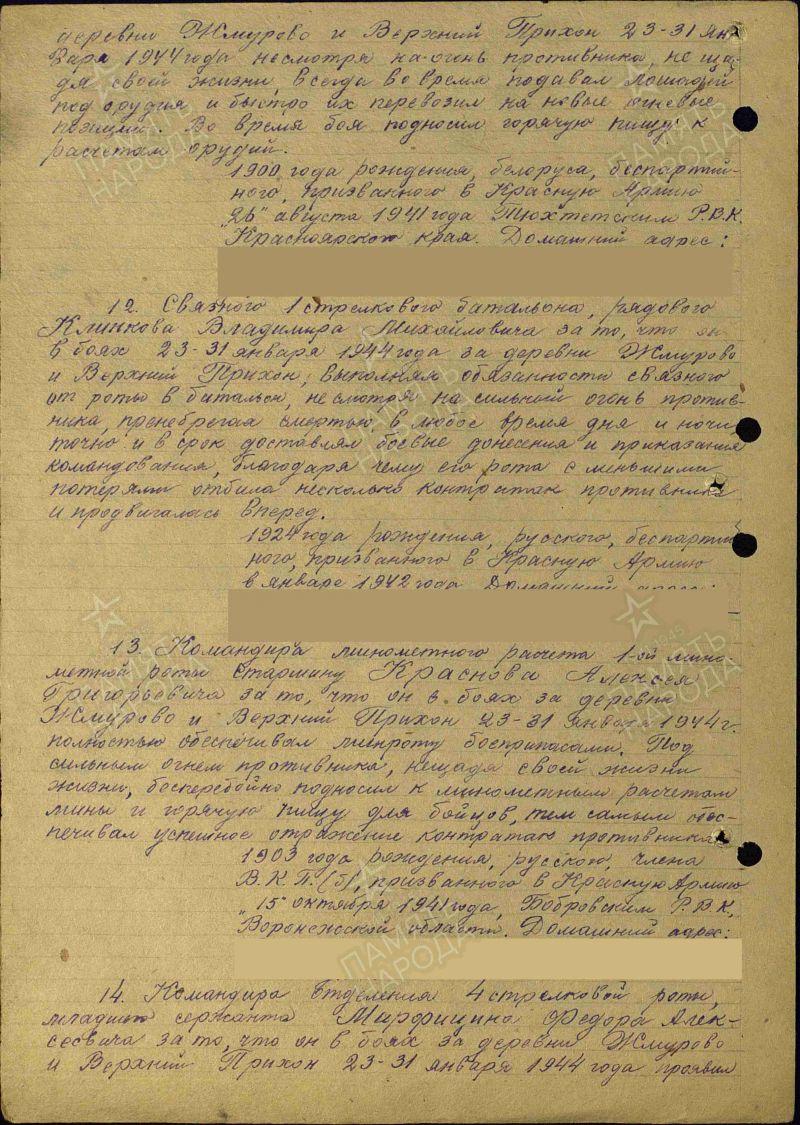 деревни Жмурово и Верхний Прихон 23-31 Ян-
варя 1944 года несмотря на огонь противника, не ща-
дя своей жизни, всегда во время подавал лошадей
под орудия и быстро их перевозил на новые огневые
позиции. Во время боя подносил горячую пищу к
расчетам орудий.
1900 года рождения, белоруса, беспартий-
ного, призванного в Красную Армию
"26" августа 1941 года Тюхтетским Р.В.К.
Красноярского края. Домашний адрес:
12. Связного 1 стрелкового батальона, рядового
Клинкова Владимира Михайловича за то, что он
в боях 23-31 января 1944 года за деревни Жмурово
и Верхний Прихон, выполняя обязанности связного
от роты в батальон, несмотря на сильный огонь против-
ника, пренебрегая смертью, в любое время дня и ночи
точно и в срок доставлял боевые донесения и приказания
командования, благодаря чему его рота с меньшими
потерями отбила несколько контратак противника
и продвигалась вперед.
1924 года рождения, русского, беспартий
ного, призванного в Красную Армию
в январе 1942 года Домашний адрес:
13. Командира минометного расчета 1-ой мино-
метной роты Старшину Краснова Алексея
Григорьевича за то, что он в боях за деревни
Жмурово и Верхний Прихон 23-31 Января 1944 г.
полностью обеспечивал минроту боеприпасами. Под
сильным огнем противника, нещадя своей жизни
жизни, бесперебойно подносил к минометным расчетам
мины и горячую пищу для бойцов, тем самым обес-
печивал успешное отражение контратак противника.
1903 года рождения, русского, члена
В.К.П.(б), призванного в Красную Армию
"15" октября 1941 года, Бобровским Р.В.К.
Воронежской области. Домашний адрес:
14. Командира Отделения 4 стрелковой роты,
младшего сержанта Марфицина Федора Алек-
сеевича за то, что он в боях за деревни Жмурово
и Верхний Прихон 23-31 января 1944 года проявил
ПАМЯТЬ
НАРОДА